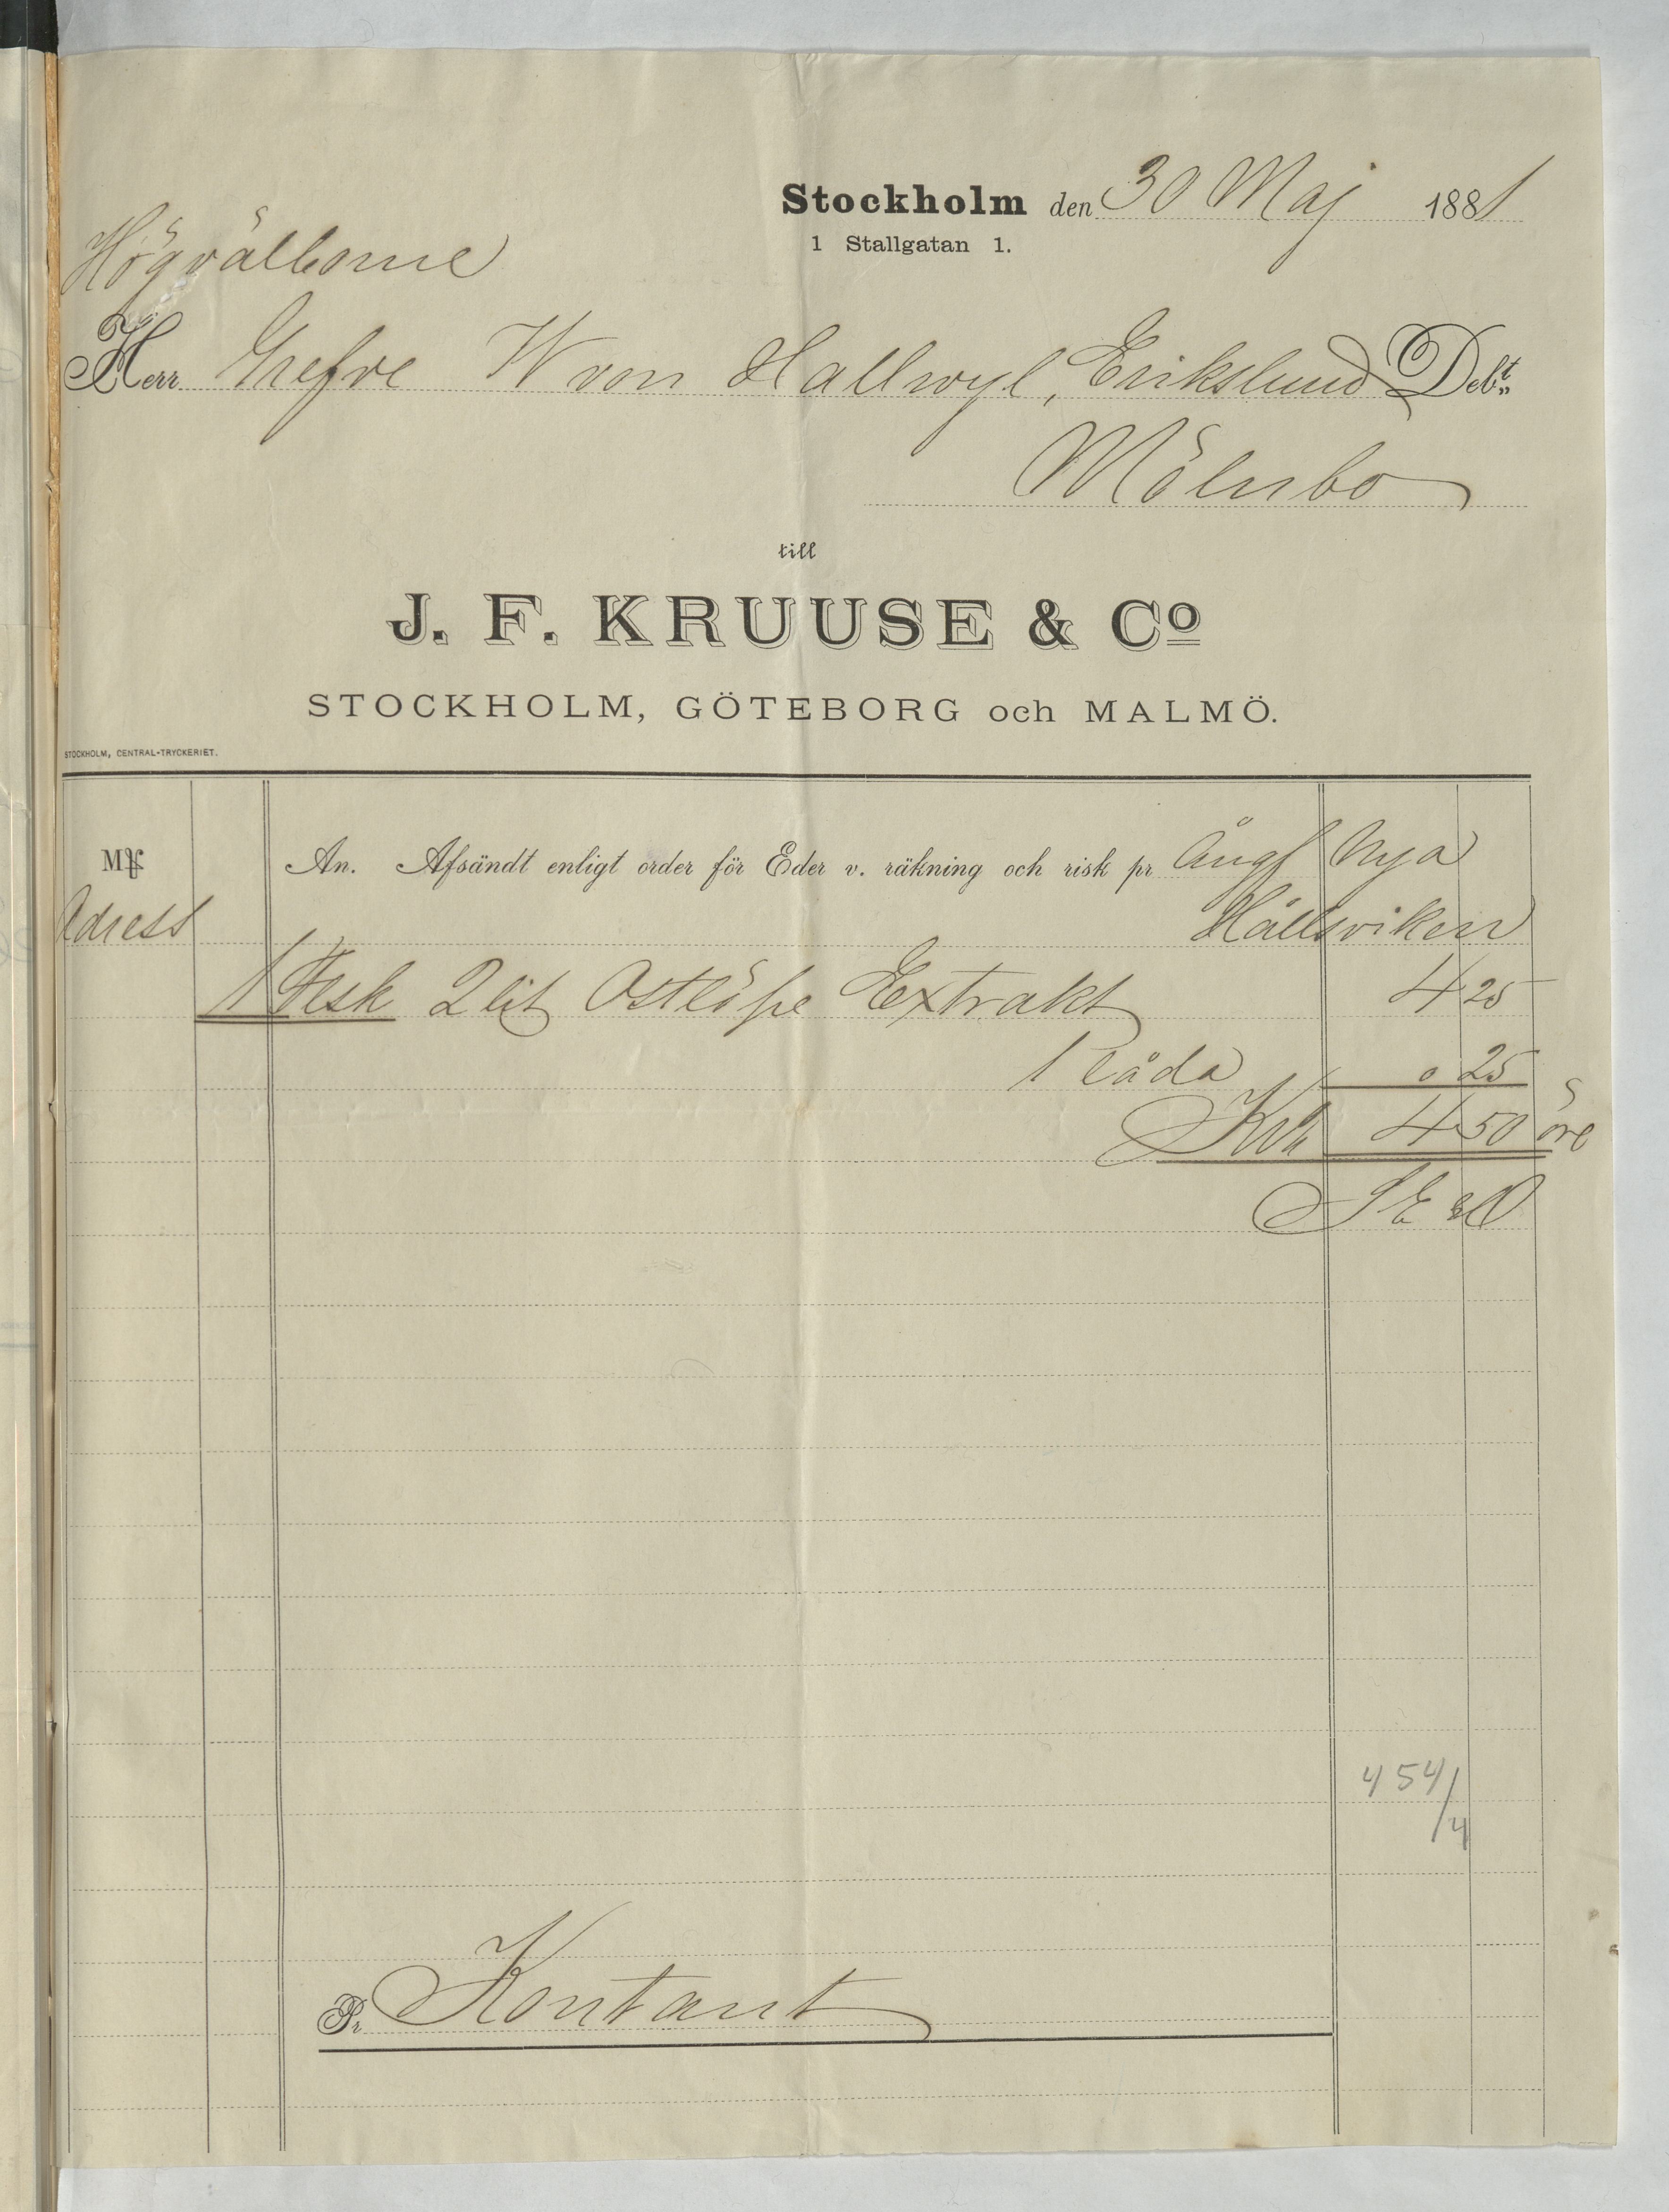 Stockholm den 30 Maj 1881
1 Stallgatan 1.
Högvälborne
Herr Grefve W von Hallwyl, Erikslund Debt.
Mölnbo
till
J. F. KRUUSE & Co
STOCKHOLM, GÖTEBORG och MALMÖ.
STOCKHOLM, CENTRAL-TRYCKERIET.
An. Afsändt enligt order för Eder v. räkning och risk pr Ångf Nya
Adress Hållsviken
1 Flsk 2 lit Ostlöpe Extrakt 4 25
1 låda 0 25
4 50 öre
S E & O
454/4
Pr Kontant